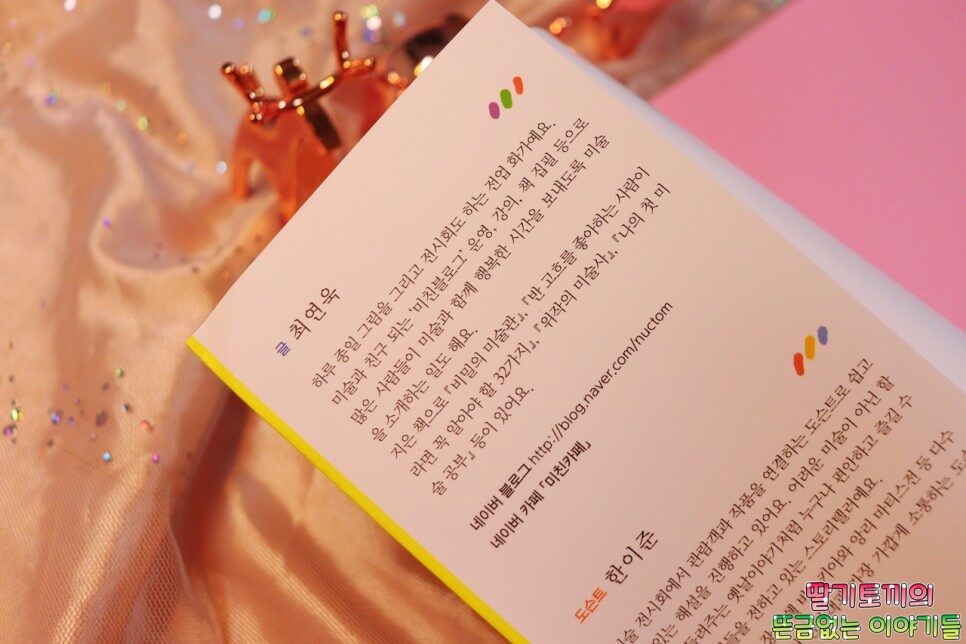 글 최연욱
하루 종일 그림을 그리고 전시회도 하는 전업 화가예요.
미술과 친구 되는 '미친블로그' 운영, 강의, 책 집필 등으로
많은 사람들이 미술과 함께 행복한 시간을 보내도록 미술
을 소개하는 일도 해요.
지은 책으로 『비밀의 미술관』, 『반 고흐를 좋아하는 사람이
라면 꼭 알아야 할 32가지』, 『위작의 미술사』, 『나의 첫 미
술 공부』 등이 있어요.
네이버 블로그 http://blog.naver.com/nuctom
네이버 카페 「미친카페」
도슨트 한이준
전시회에서 관람객과 작품을 연결하는 도슨트로 쉽고
있는 해설을 진행하고 있어요. 어려운 미술이 아닌 할
들려주는 옛날이야기처럼 누구나 편안하고 즐길 수
을 전하고 있는 스토리텔러예요.
앙리 마티스전 등 다수
가장 가깝게 소통하는
딸기토끼의
뜬금없는 이야기들